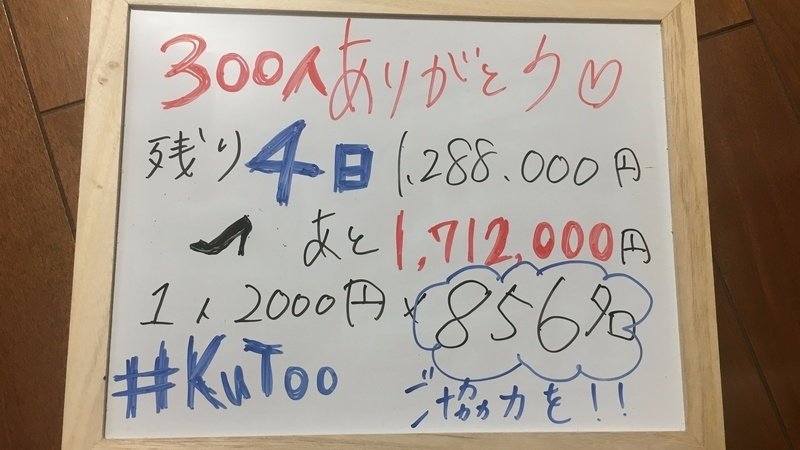 300人ありがとう♡
残り4日 1,288.000円
あと1,712,000円
1人2000円×856名
#KuToo ご協力を!!